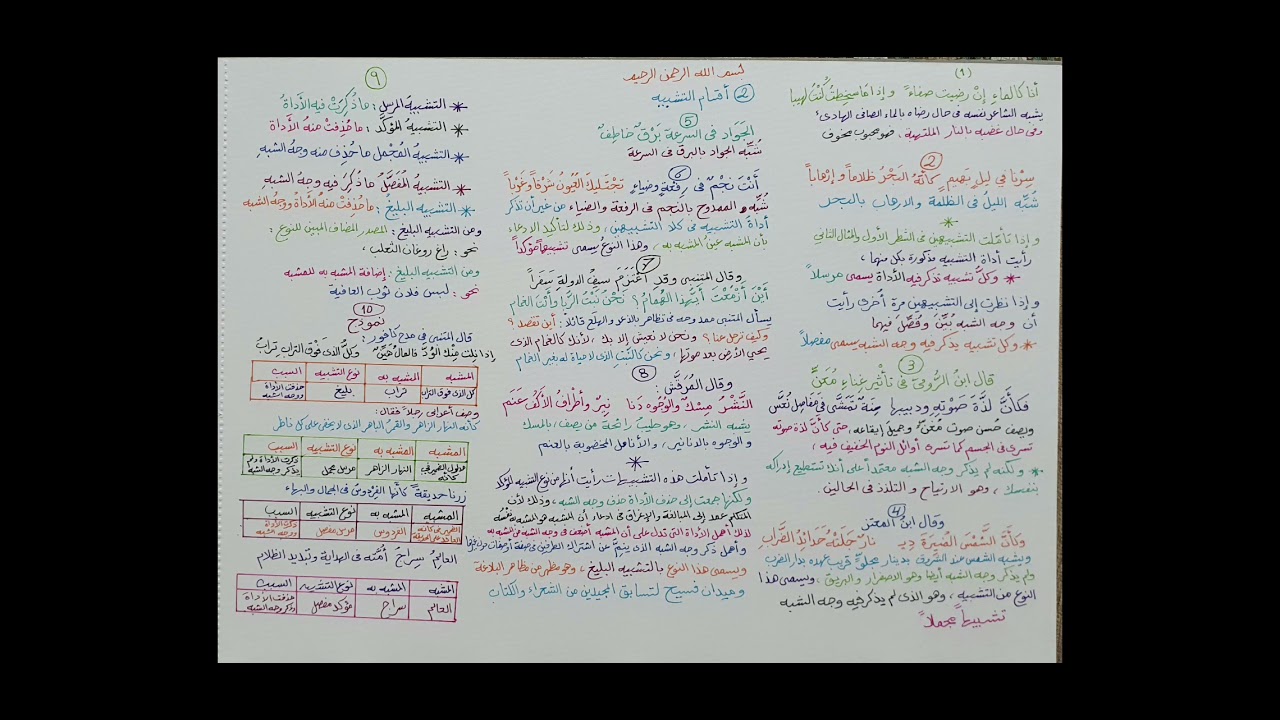 بسم الله الرحمن الرحيم
② أقسام التشبيه
(١)
أنا كالماءِ إنْ رضيتُ صفاءً وإذا ما سخطتُ كُنْتُ لهيبا
يشبه الشاعر نفسه في حال رضاه بالماء الصافي الهادئ
وفي حال غضبه بالنار الملتهبة، فهو محبوب مخوف
②
سِرْنا في ليلٍ بَهيمٍ كأنّهُ البَحْرُ ظلاماً وإرهاباً
شُبِّه الليل في الظلمة والارهاب بالبحر
*
وإذا تأملت التشبيهين في الشطر الأول والمثال الثاني
رأيت أداة التشبيه مذكورة بكل منهما،
* وكلُّ تشبيه تذكر فيه الأداة يسمى مرسلاً
وإذا نظرت إلى التشبيهين مرة أُخرى رأيت
أن وجه الشبه بُيِّنَ وفُصِّلَ فيهما
* وكل تشبيه يذكر فيه وجه الشبه يسمى مفصلاً
③
قال ابنُ الرُّوميِّ في تأثيرِ غِناءِ مُغَنٍّ
فكأنَّ لذَّةَ صَوْتِهِ ودبيبَها سِنَةٌ تَمَشَّى في مفاصِلِ نُعَّسِ
ويصف حُسن صوت مُغَنٍّ وجميل إيقاعه، حتى كأنَّ لذة صوته
تسرى في الجسم كما تسرى أوائل النوم الخفيف فيه،
* ولكنه لم يذكر وجه الشبه معتمداً على أنك تستطيع إدراكه
بنفسك، وهو الارتياح والتلذذ في الحالين.
④
وقال ابنُ المعتز
وكأنَّ الشَّمْسَ المُنِيرَةَ دِيـ ـنارٌ جَلَتْهُ حَدَائِدُ الضَّرَّابِ
ويشبه الشمس عند الشروق بدينار مجلوٍّ قريب عهده بدار الضرب
ولم يذكر وجه الشبه أيضا وهو الاصفرار والبريق، ويسمى هذا
النوع من التشبيه، وهو الذى لم يذكر فيه وجه الشبه
تشبيهاً مجملاً
⑤
الجَوَاد في السرعة بَرْقٌ خاطِفٌ
شُبِّه الجواد بالبرق في السرعة
⑥
أَنْتَ نجْمٌ في رِفْعةٍ وضِياءٍ تجْتَليكَ العُيُونُ شَرْقاً وغَرْباً
شُبِّه الممدوح بالنجم في الرفعة والضياء من غير أن تذكر
أداة التشبيه في كلا التشبيهين، وذلك لتأكيد الادعاء
بأن المشبه عينُ المشبه به، وهذا النوع يسمى تشبيهاً مؤكداً
⑦
وقال المتنبي وقد اعْتَزَمَ سيفُ الدولة سَفَراً
أيْنَ أزْمَعْتَ أيُّهذا الهُمامُ؟ نَحْنُ نَبْتُ الرُّبا وأنْتَ الغمامُ
يسأل المتنبي ممدوحه في تظاهر بالذعر والهلع قائلاً: أين تقصد؟
وكيف ترحل عنا؟ ونحن لا نعيش إلا بك، لأنك كالغمام الذى
يحيي الأرض بعد موتها، ونحن كالنَّبتِ الذى لا حياة له بغير الغمام
⑧
وقال المُرَقّش:
النَّشْرُ مِسْكٌ والوُجُوه دَنا نِيرٌ وأطْرافُ الأكُفِّ عَنَم
يشبه النشر، وهو طيب رائحة من يصف، بالمسك
والوجوه بالدنانير، والأنامل المخضوبة بالعنم
*
وإذا تأملت هذه التشبيهات رأيت أنها من نوع التشبيه المؤكد
ولكنها جمعت إلى حذف الأداة حذف وجه الشبه، وذلك لأن
المتكلم عمد إلى المبالغة والإغراق في ادعاء أن المشبه هو المشبه به نفسُه
لذلك أهمل الأداة التى تدل على أن المشبه أضعف في وجه الشبه من المشبه به
وأهمل ذكر وجه الشبه الذى ينمُّ عن اشتراك الطرفين في صفة أو صفات دون غيرها
ويسمى هذا النوع بالتشبيه البليغ، وهو مظهر من مظاهر البلاغة
وميدان فسيح لتسابق المجيدين من الشعراء والكتاب
⑨
* التشبيهُ المُرسل: ما ذُكِرَتْ فيه الأداةُ
* التشبيه المؤكّد: ما حُذِفتْ منهُ الأداة
* التشبيه المُجْمل ما حُذِف منه وجهُ الشبه
* التشبيه المُفَصَّلُ ما ذُكِرَ فيه وجهُ الشبه
* التشبيه البليغ: ما حُذِفتْ منه الأداةُ ووجهُ الشبه
ومن التشبيه البليغ: المصدر المضاف المبين للنوع:
نحو: راغ روغان الثعلب،
ومن التشبيه البليغ: إضافة المشبه به للمشبه
نحو: لبس فلان ثوب العافية
⑩
نموذج
قال المتنبي في مدح كافور:
إذا نِلتُ مِنْكَ الوُدَّ فالمالُ هَيِّنٌ وكلُّ الذى فَوْقَ الترابِ ترابُ
المشبه المشبه به نوع التشبيه السبب
كل الذى فوق التراب تراب بليغ حذفت الأداة ووجه الشبه
وصف أعرابي رجلاً فقال:
كأنه النهار الزاهر والقمر الباهر الذى لا يخفى على كل ناظر
المشبه المشبه به نوع التشبيه السبب
النهار الزاهر مرسل مجمل ذكرت الأداة ولم يذكر وجه الشبه
زرنا حديقةً كأنها الفردوس في الجمال والبهاء
المشبه المشبه به نوع التشبيه السبب
الضمير في كأنه العائد على الحديقة الفردوس مرسل مفصل ذكرت الأداة ووجه الشبه
العالِمُ سِراجُ أمّته في الهداية وتبديد الظلام
المشبه المشبه به نوع التشبيه السبب
العالم سراج مؤكد مفصل حذفت الأداة وذكر وجه الشبه